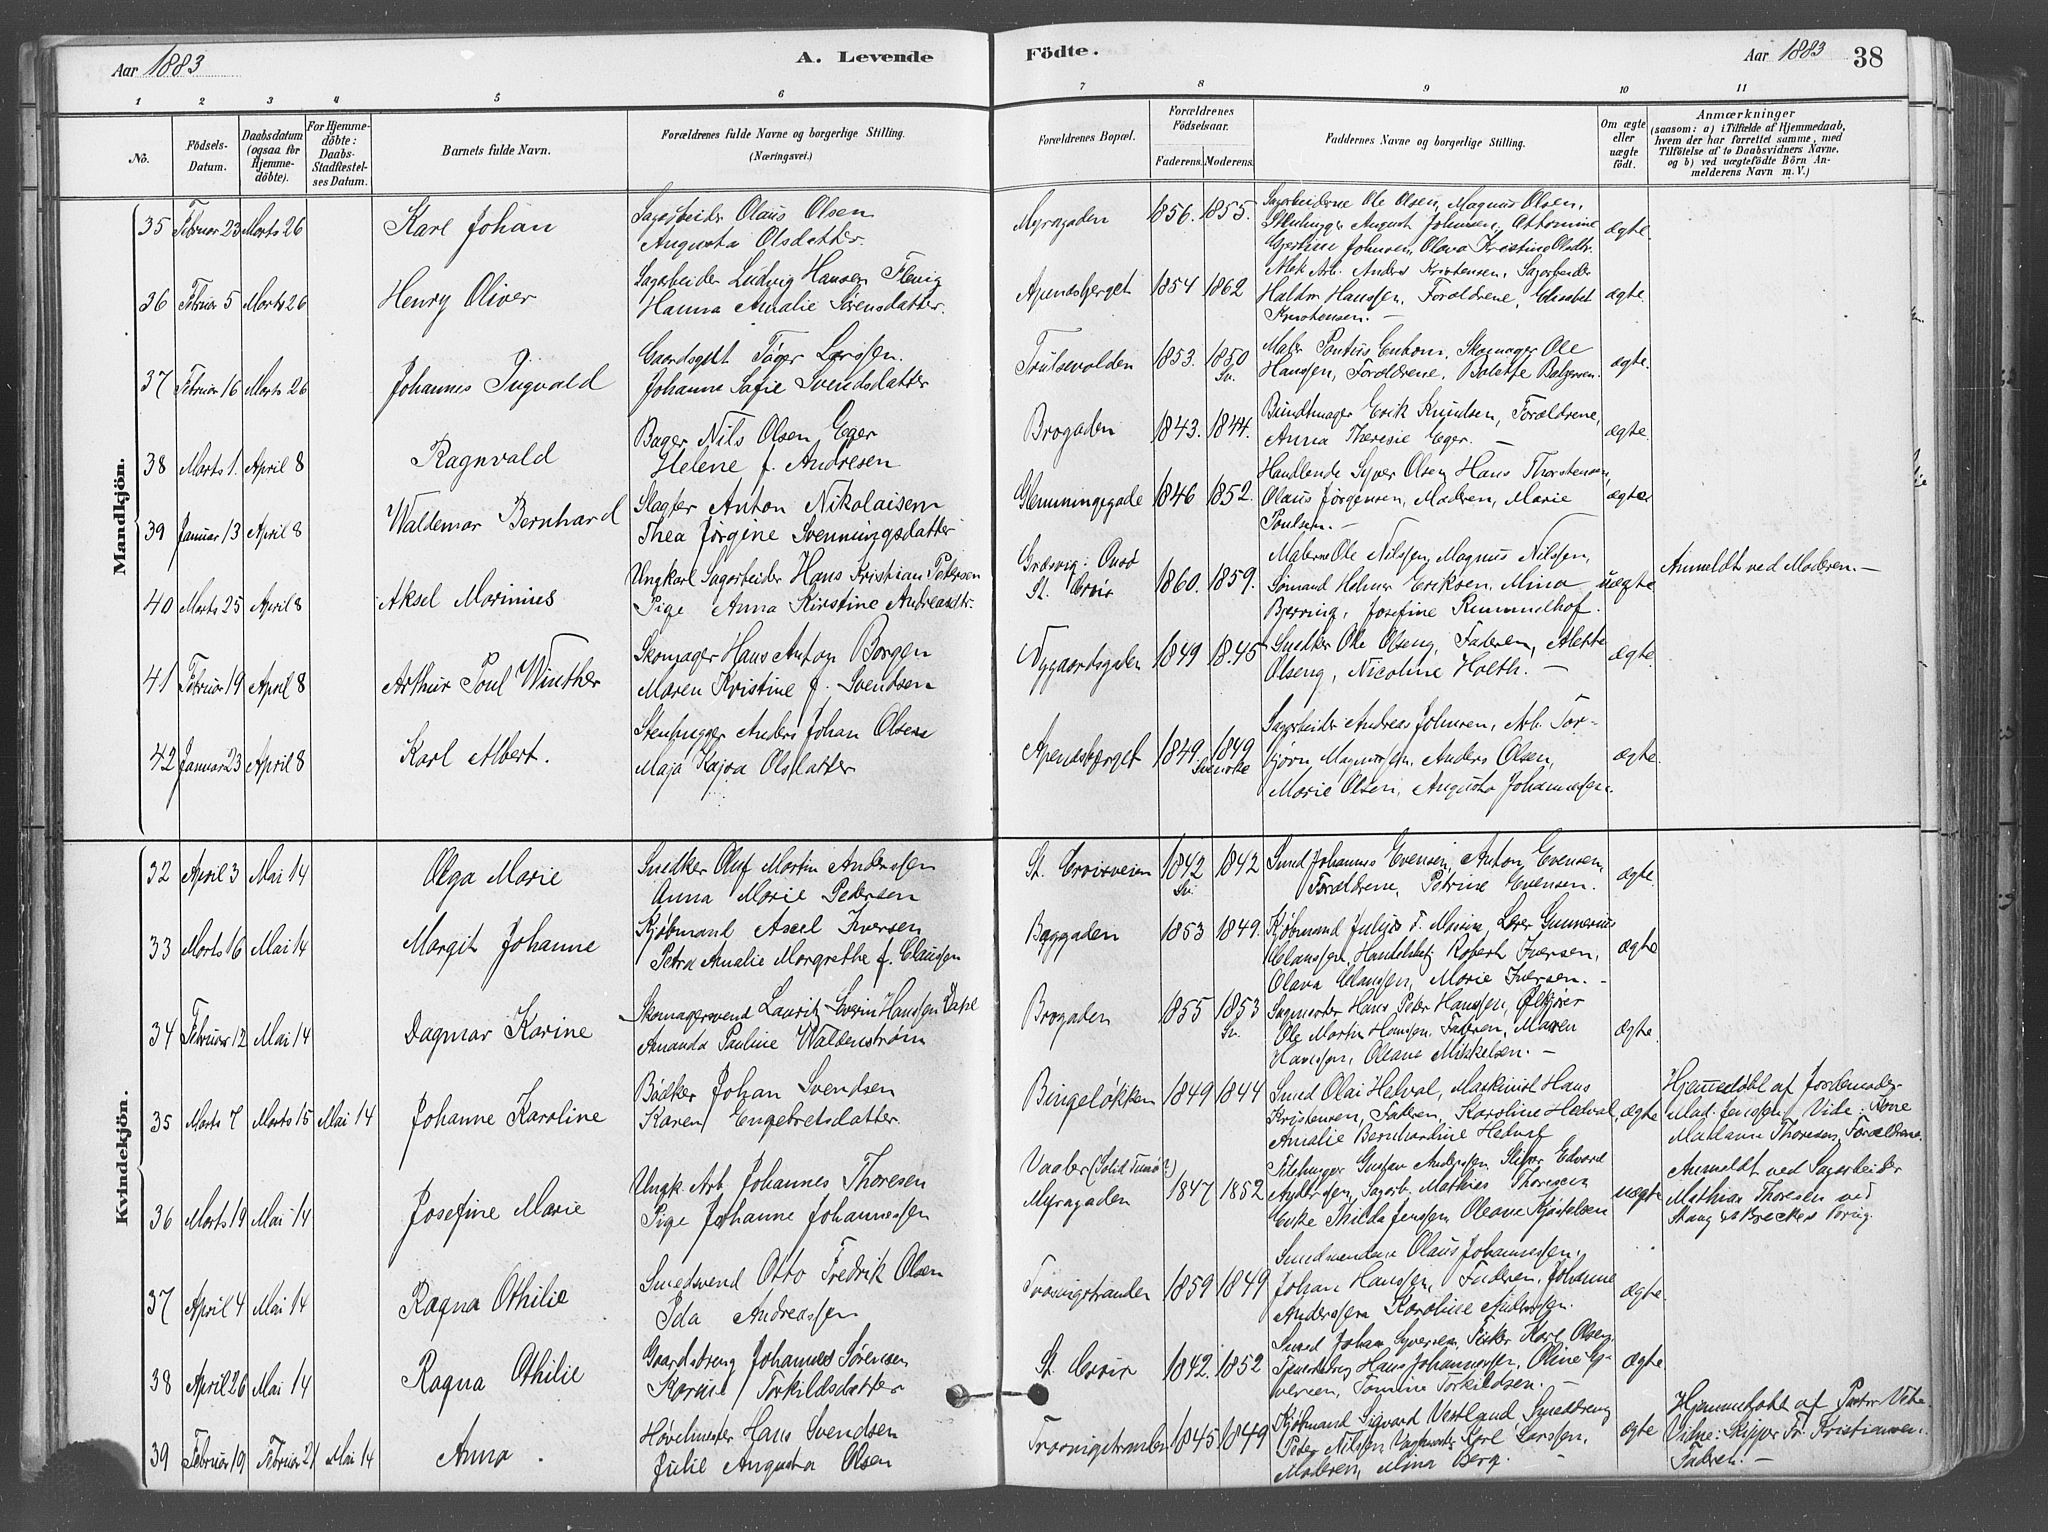 Aar 1883
A. Levende
Födte.
Aar 1883
38
1 2 3 4 5 6 7 8 9 10 11
No.
Födsels-
Datum.
Daabsdatum
(ogsaa för
Hjemme-
döbte).
For Hjemme-
döbte:
Daabs-
Stadfæstel-
ses Datum.
Barnets fulde Navn.
Forældrenes fulde Navne og borgerlige Stilling.
(Næringsvei.)
Forældrenes Bopæl.
Forældrenes
Födselsaar.
Faderens. Moderens.
Faddernes Navne og borgerlige Stilling.
Om ægte
eller
uægte
födt.
Anmærkninger
(saasom: a) i Tilfælde af Hjemmedaab,
hvem der har forrettet samme, med
Tilföielse af to Daabsvidners Navne,
og b) ved uægtefödte Börn An-
melderens Navn m. V.)
Mandkjön.
35 Februar 23 Marts 26 Karl Johan
Sagarbeider Olaus Olsen
Augusta Olsdatter.
Myragaden 1856. 1855.
Sagarbeiderne Ole Olsen, Magnus Olsen,
Stenhugger August Johnsen,
Johnsen, Olava Kristine Olsdtr.
ægte.
36 Februar 5 Marts 26 Henry Oliver
Sagarbeider Ludvig Hansen
Hanna Amalie Sörensdatter.
Apenesbjerget 1854 1862
Arb. Anders Kristensen, Sagarbeider
Hanssen, Forældrene, Elisabet
Kristensen. —
ægte.
37 Februar 16 Marts 26 Johannes Ingvald
Gaardsgut Larssen.
Johanne Sofie Svendsdatter
Trulsevolden 1853. 1850
Sv.
Maler Pontus Skomager Ole
Hanssen, Forældrene,
ægte.
38 Marts 1. April 8 Ragnvald
Bager Nils Olsen Eger
Helene f. Andresen
Brogaden 1843. 1844.
Bundtmager Erik Knudsen, Forældrene,
Anna Theresie Eger. —
ægte.
39 Januar 13 April 8 Waldemar Bernhard
Slagter Anton Nikolaisen
Thea Jörgine Svenningsdatter
Glemmingegade 1846 1852.
Handlende Syver Olsen, Hans Thorstensen,
Olaus Jörgensen, Moderen, Marie
Poulsen. —
ægte.
40 Marts 25 April 8 Aksel Marinius
Ungkarl Sagarbeider Hans Kristian Petersen
Pige Anna Kirstine Andreasdtr.
Græsvig: Onsö
St. Croix
1860. 1859.
Malerne Ole Nilssen, Magnus Nilssen,
Sömand Helmer Eriksen, Mina
Bjerring, Josefine Rummelhof.
uægte
Anmeldt ved Moderen. —
41 Februar 19 April 8 Arthur Poul Winther
Skomager Hans Anton Borgen
Maren Kristine f. Svendsen
Nygaardsgaden 1849 1845
Snedker Ole Olseng, Faderen, Alette
Olseng, Nicoline Holth. —
ægte.
42 Januar 23 April 8 Karl Albert.
Stenhugger Anders Johan Olsen
Maja Kajsa Olsdatter
Apenesbjerget 1849. 1849
Svenske
Sagarbeider Andreas Johnsen, Arb. Tor-
björn Anders Olsen,
Marie Olsen, Augusta Johannessen.
ægte.
Kvindekjön.
32 April 3 Mai 14 Olga Marie
Snedker Oluf Martin Anderssen
Anna Marie Petersen
St. Croixveien 1842 1842
Sv.
Smed Johannes Evensen, Anton Evensen,
Forældrene, Petrine Evensen.
ægte.
33 Marts 16 Mai 14 Margit Johanne
Kjöbmand Axel Iversen
Petra Amalie Margrethe f. Claussen
Baggaden 1853 1849.
Kjöbmand Julius Lærer Gunnerius
Claussen, Robert Iversen,
Olava Claussen, Marie Iversen. —
ægte
34 Februar 12 Mai 14 Dagmar Karine
Skomagersvend Lauritz Severin Hanssen Dahl
Amanda Pauline Waldenström
Brogaden 1855 1853
Sv.
Sagmester Hans Peter Hanssen,
Ole Martin Hanssen, Faderen, Maren
Hanssen, Oleane Mikkelsen. —
ægte.
35 Marts 7 Marts 15 Mai 14 Johanne Karoline
Bödker Johan Svendsen
Karen Engebretsdatter
Bingelökken 1849 1844
Smed Olai Hedval, Maskinist Hans
Kristensen, Faderen, Karoline Hedval,
Amalie Bernhardine Hedval
ægte
Hjemmedöbt af Jordemoder
Mad. Jenssen, Vidn: Kone
Madame Thoresen, Forældrene.
36 Marts 19 Mai 14 Josefine Marie
Ungk. Arb. Johannes Thoresen
Pige Johanne Johannessen
Vaaler
Myragaden
1847 1852
Stenhugger Gustav Anderssen, Sliper Edvard
Anderssen, Sagarb. Mathias Thoresen
Enke Thilda Jenssen, Oleane Kjöstelsen
uægte
Anmeldt ved Sagarbeider
Mathias Thoresen ved
Stang
37 April 4 Mai 14 Ragna Othilie
Smedsvend Otto Fredrik Olsen
Ida Andreassen
Trosvigstranden 1859 1849
Smedsvendene Olaus Johannessen,
Johan Hanssen, Faderen, Johanne
Anderssen, Karoline Anderssen.
ægte.
38 April 26 Mai 14 Ragna Othilie
Gaardsdreng Johannes Sörensen
Karine Torkildsdatter
St. Croix 1842. 1852
Smed Johan Syversen, Fisker Karl Olsen,
Hans Johannessen, Oline Sy-
versen, Tomine Torkildsen. —
ægte
39 Februar 19 Februar 21 Mai 14 Anna.
Hövelmester Hans Svendsen
Julie Augusta Olsen
Trosvigstranden 1845 1849
Kjöbmand Sigvard Vestland, Smeddreng
Peter Nilssen, Karl Larssen,
Moderen, Mina Berg. —
ægte
Hjemmedöbt af Pastor
Vidne: Skipper Fr. Kristiansen.
Faderen. —